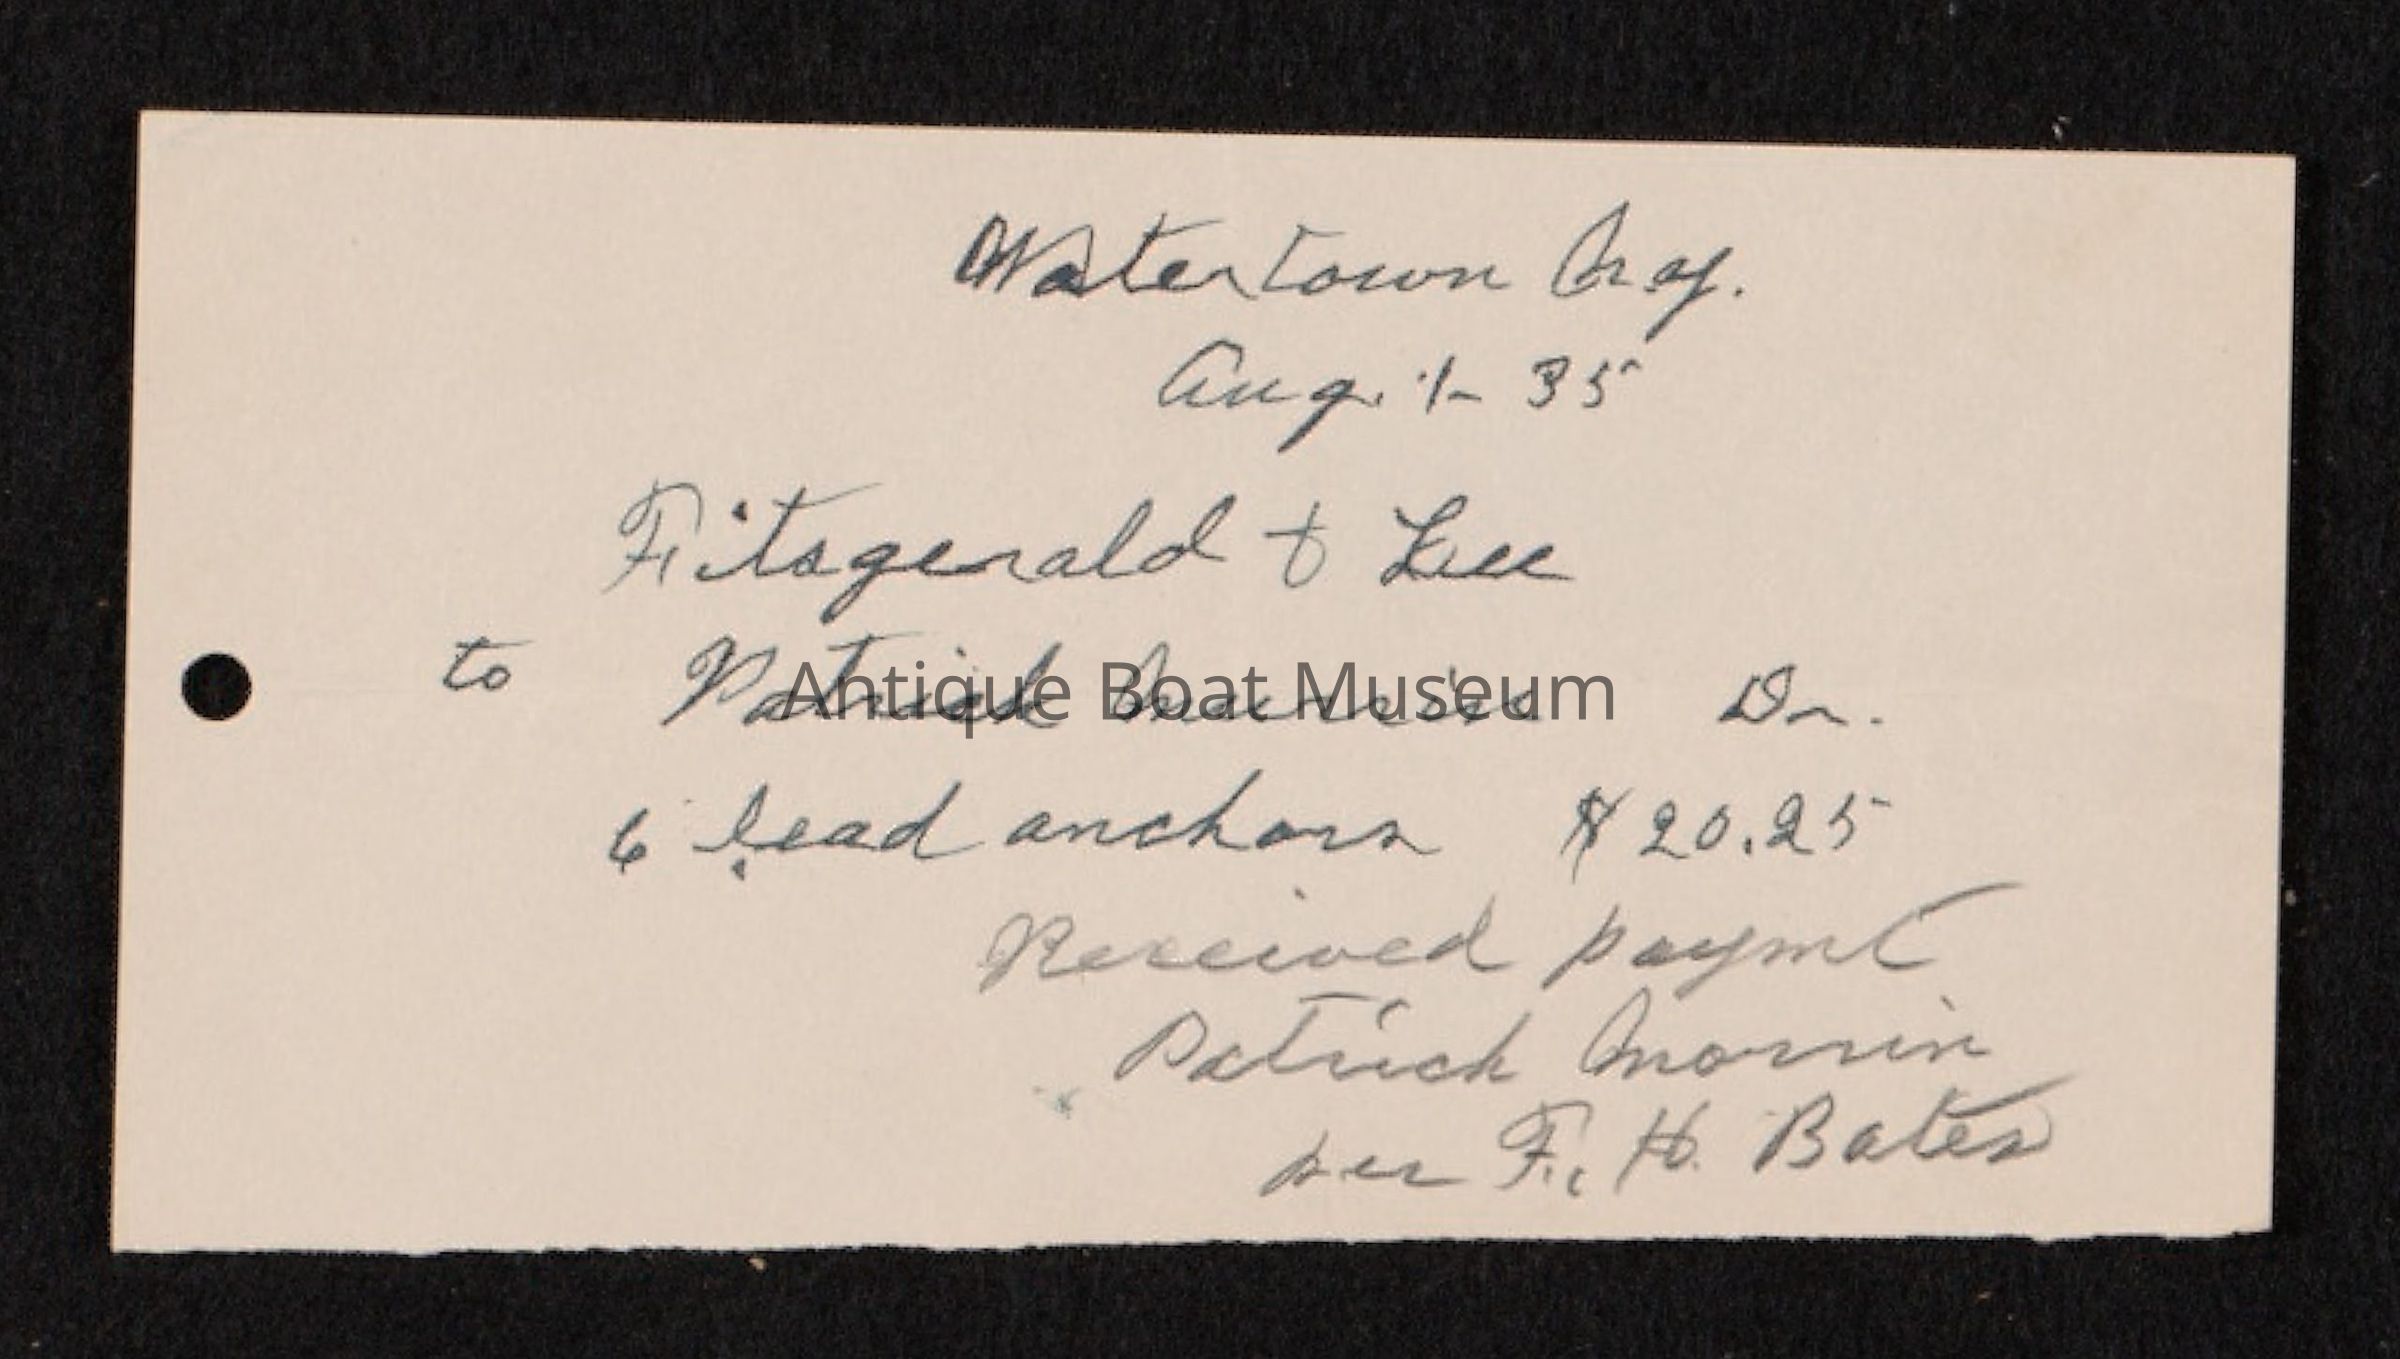 Watertown N.Y.
Aug. 1- 35
Fitzgerald & Lee
to Patrick Dr.
Antique Boat Museum
6 lead anchors $20.25
Received paymt
Patrick Morrin
per F. H. Bates